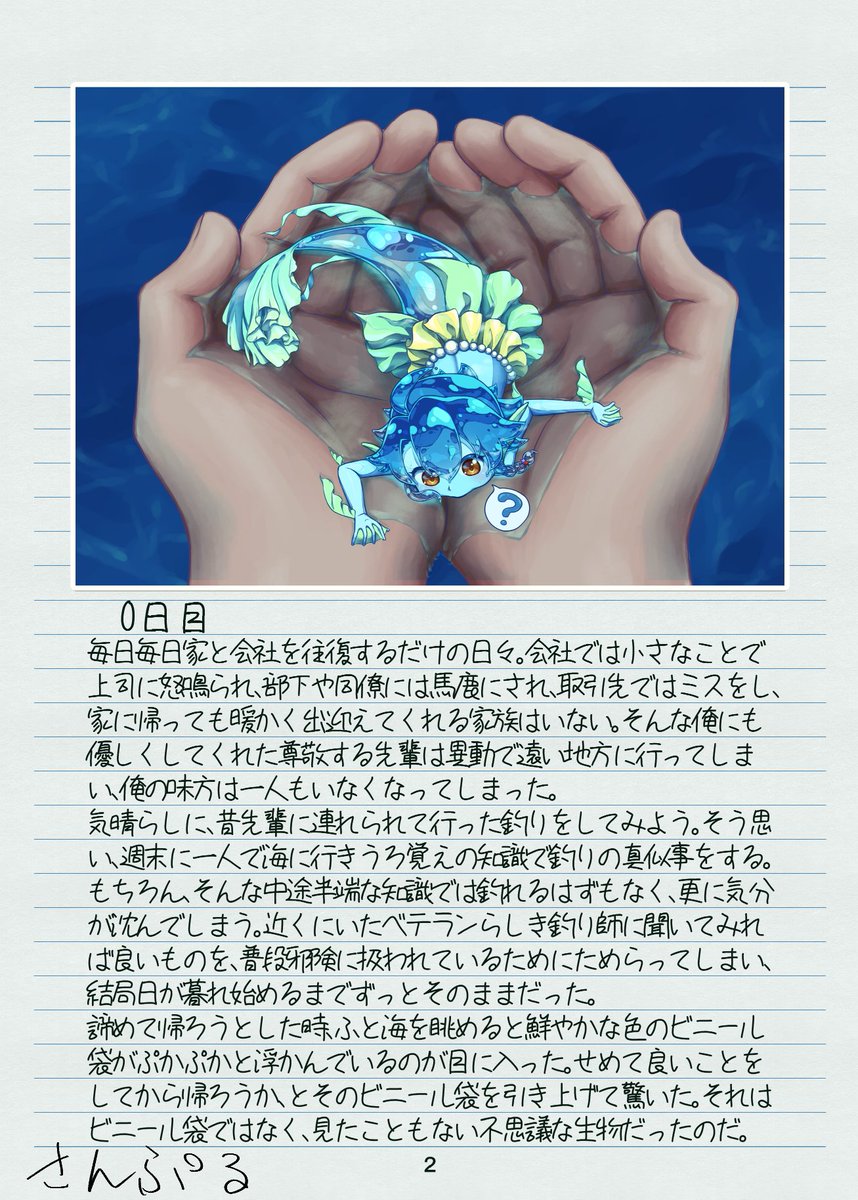 ?
0日目
毎日毎日家と会社を往復するだけの日々。会社では小さなことで
上司に怒鳴られ、部下や同僚には馬鹿にされ、取引先ではミスをし、
家に帰っても暖かく出迎えてくれる家族はいない。そんな俺にも
優しくしてくれた尊敬する先輩は異動で遠い地方に行ってしま
い、俺の味方は一人もいなくなってしまった。
気晴らしに、昔先輩に連れられて行った釣りをしてみよう。そう思
い、週末に一人で海に行きうろ覚えの知識で釣りの真似事をする。
もちろん、そんな中途半端な知識では釣れるはずもなく、更に気分
が沈んでしまう。近くにいたベテランらしき釣り師に聞いてみれ
ば良いものを、普段邪険に扱われているためにためらってしまい、
結局日が暮れ始めるまでずっとそのままだった。
諦めて帰ろうとした時、ふと海を眺めると鮮やかな色のビニール
袋がぷかぷかと浮かんでいるのが目に入った。せめて良いことを
してから帰ろうか、とそのビニール袋を引き上げて驚いた。それは
ビニール袋ではなく、見たこともない不思議な生物だったのだ。
さんぷる
2